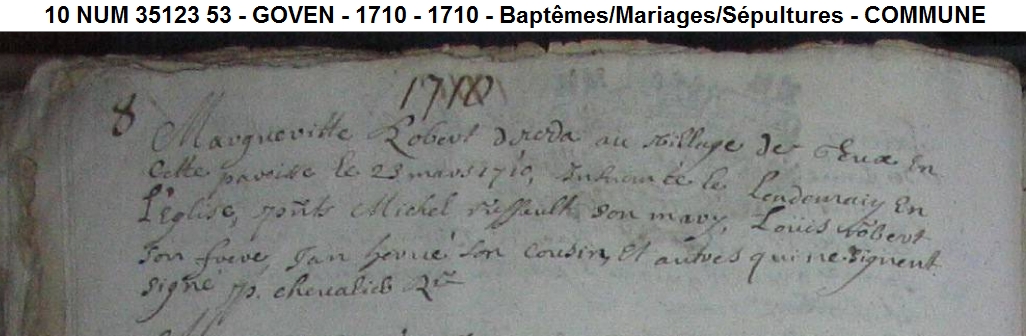 10 NUM 35123 53 - GOVEN - 1710 - 1710 - Baptêmes/Mariages/Sépultures - COMMUNE
1710
8 Margueritte Robert deceda au village de en
Cette paroisse le 23 mars 1710, Inhumée le Lendemain En
l'Eglise, pnts Michel Riffault son mary, Louis robert
son frere, Jan hervé son cousin, Et autres qui ne signent
signé p. chevalier Rr